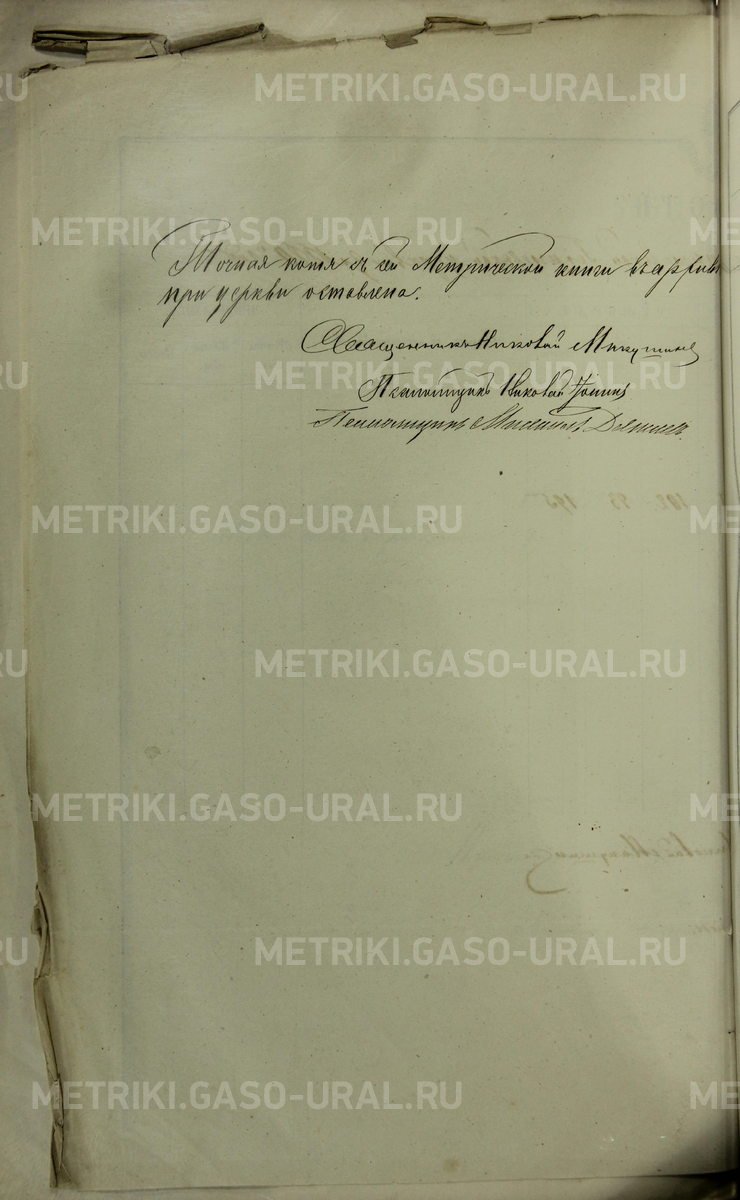 Точная копія съ сей Метрической книги въ архивѣ
при церкви оставлена.
Священникъ Николай Микушинъ
Псаломщикъ Николай
Псаломщикъ Михаилъ
METRIKI.GASO-URAL.RU
METRIKI.GASO-URAL.RU
METRIKI.GASO-URAL.RU
METRIKI.GASO-URAL.RU
METRIKI.GASO-URAL.RU
METRIKI.GASO-URAL.RU
METRIKI.GASO-URAL.RU
METRIKI.GASO-URAL.RU